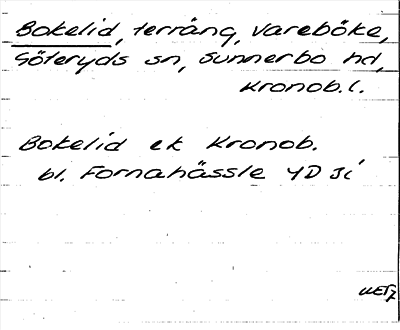 Bokelid, terräng, Vareböke,
Göteryds sn, Sunnerbo hd,
Kronob. l.
Bokelid ek Kronob.
bl. Fornahässle 4D